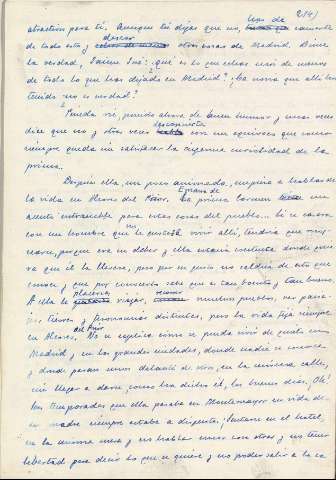 284)
atractivo para ti. Aunque tú digas que no, lejos de
de todo esto y desear otras cosas de Madrid. Dime
la verdad, Jaime José: ¿qué es lo que echas más de menos
de todo lo que has dejado en Madrid? ¿La novia que allí has
tenido, no es verdad?
Pineda ríe, puesto ahora de buen humor y unas veces
dice que no y otras veces con un equívoco que nunca
ningún queda sin satisfacer la ingenua curiosidad de la
prima.
Después ella, un poco animada, empieza a hablar de
la vida en Alcores del Pinar. La prima Carmen siente un
acento entrañable para estas cosas del pueblo... Si se casara
con un hombre que no quisiera vivir allí, tendría que resig-
narse, porque era su deber y ella estaría contenta donde quie-
ra que él la llevase, pero por su gusto no saldría de esto que
conoce y que por costumbre cree que es tan bonito y tan bueno.
A ella le placería viajar, muchos pueblos, ver paisa-
jes, tierras y personas distintas, pero la vida fija siempre
en Alcores del Pinar. No se explica cómo se puede vivir de gusto en
Madrid y en las grandes ciudades, donde nadie se conoce
y donde pasan unos delante de otro, en la misma calle,
sin llegar a darse, como Dios manda, los buenos días. Oh!
las temporadas que ella pasaba en Montemayor en vida de
su madre siempre estaba a disgusto; sentarse en el hotel,
en la misma mesa y no hablar unos con otros y no tener
libertad para decir lo que se quiere y no poder salir a la ca